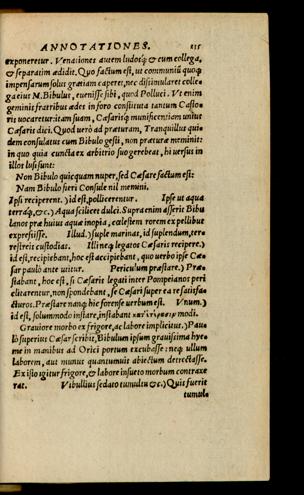 ANNOTATIONES. 215
exponeretur. Venationes autem ludosq́; & cum collega,
& separatim ædidit. Quo factum est, ut communiũ quoq;
impensarum solus gratiam caperet, nec dissimularet colle-
ga eius M. Bibulus, euenisse sibi, quod Polluci. Vt enim
geminis fratribus ædes in foro constituta tantum Casto-
ris uocaretur: itam suam, Cæsarisq́; munificentiam unius
Cæsaris dici. Quod uerò ad præturam, Tranquillus qui-
dem consulatus cum Bibulo gesti, non præturæ meminit:
in quo quia cuncta ex arbitrio suo gerebat, hi uersus in
illos lusi sunt:
Non Bibulo quicquam nuper, sed Cæsare factum est:
Nam Bibulo fieri Consule nil memini.
Ipsi reciperent.) id est, pollicerentur. Ipse ut aqua
terraq́;, &c.) Aqua scilicet dulci. Supra enim asserit Bibu
lanos præ huius aquæ inopia, cœlestem rorem ex pellibus
expressisse. Illud.) suple marinas, id suplendum, terre
restreis custodias. Illi neq; legatos Cæsaris recipere.)
id est, recipiebant, hoc est accipiebant, quo uerbo ipse Cæ-
sar paulò ante utitur. Periculum præstare.) Præ-
stabant, hoc est, si Cæsaris legati inter Pompeianos peri
clitarentur, non spondebant, se Cæsari super ea re satisfa-
cturos. Præstare nanq; hic forense uerbum est. Vnum.)
id est, solummodo instare, instabant modi.
Grauiore morbo ex frigore, ac labore implicitus.) Pau-
lò superius Cæsar scribit, Bibulum ipsum grauissima hye-
me in manibus ad Orici portum excubasse: neq; ullum
laborem, aut munus quantumuis abiectum detrectasse.
Ex isto igitur frigore, & labore insueto morbum contraxe
rat. Vibullius sedato tumultu &c.) Quis fuerit
tumul⸗